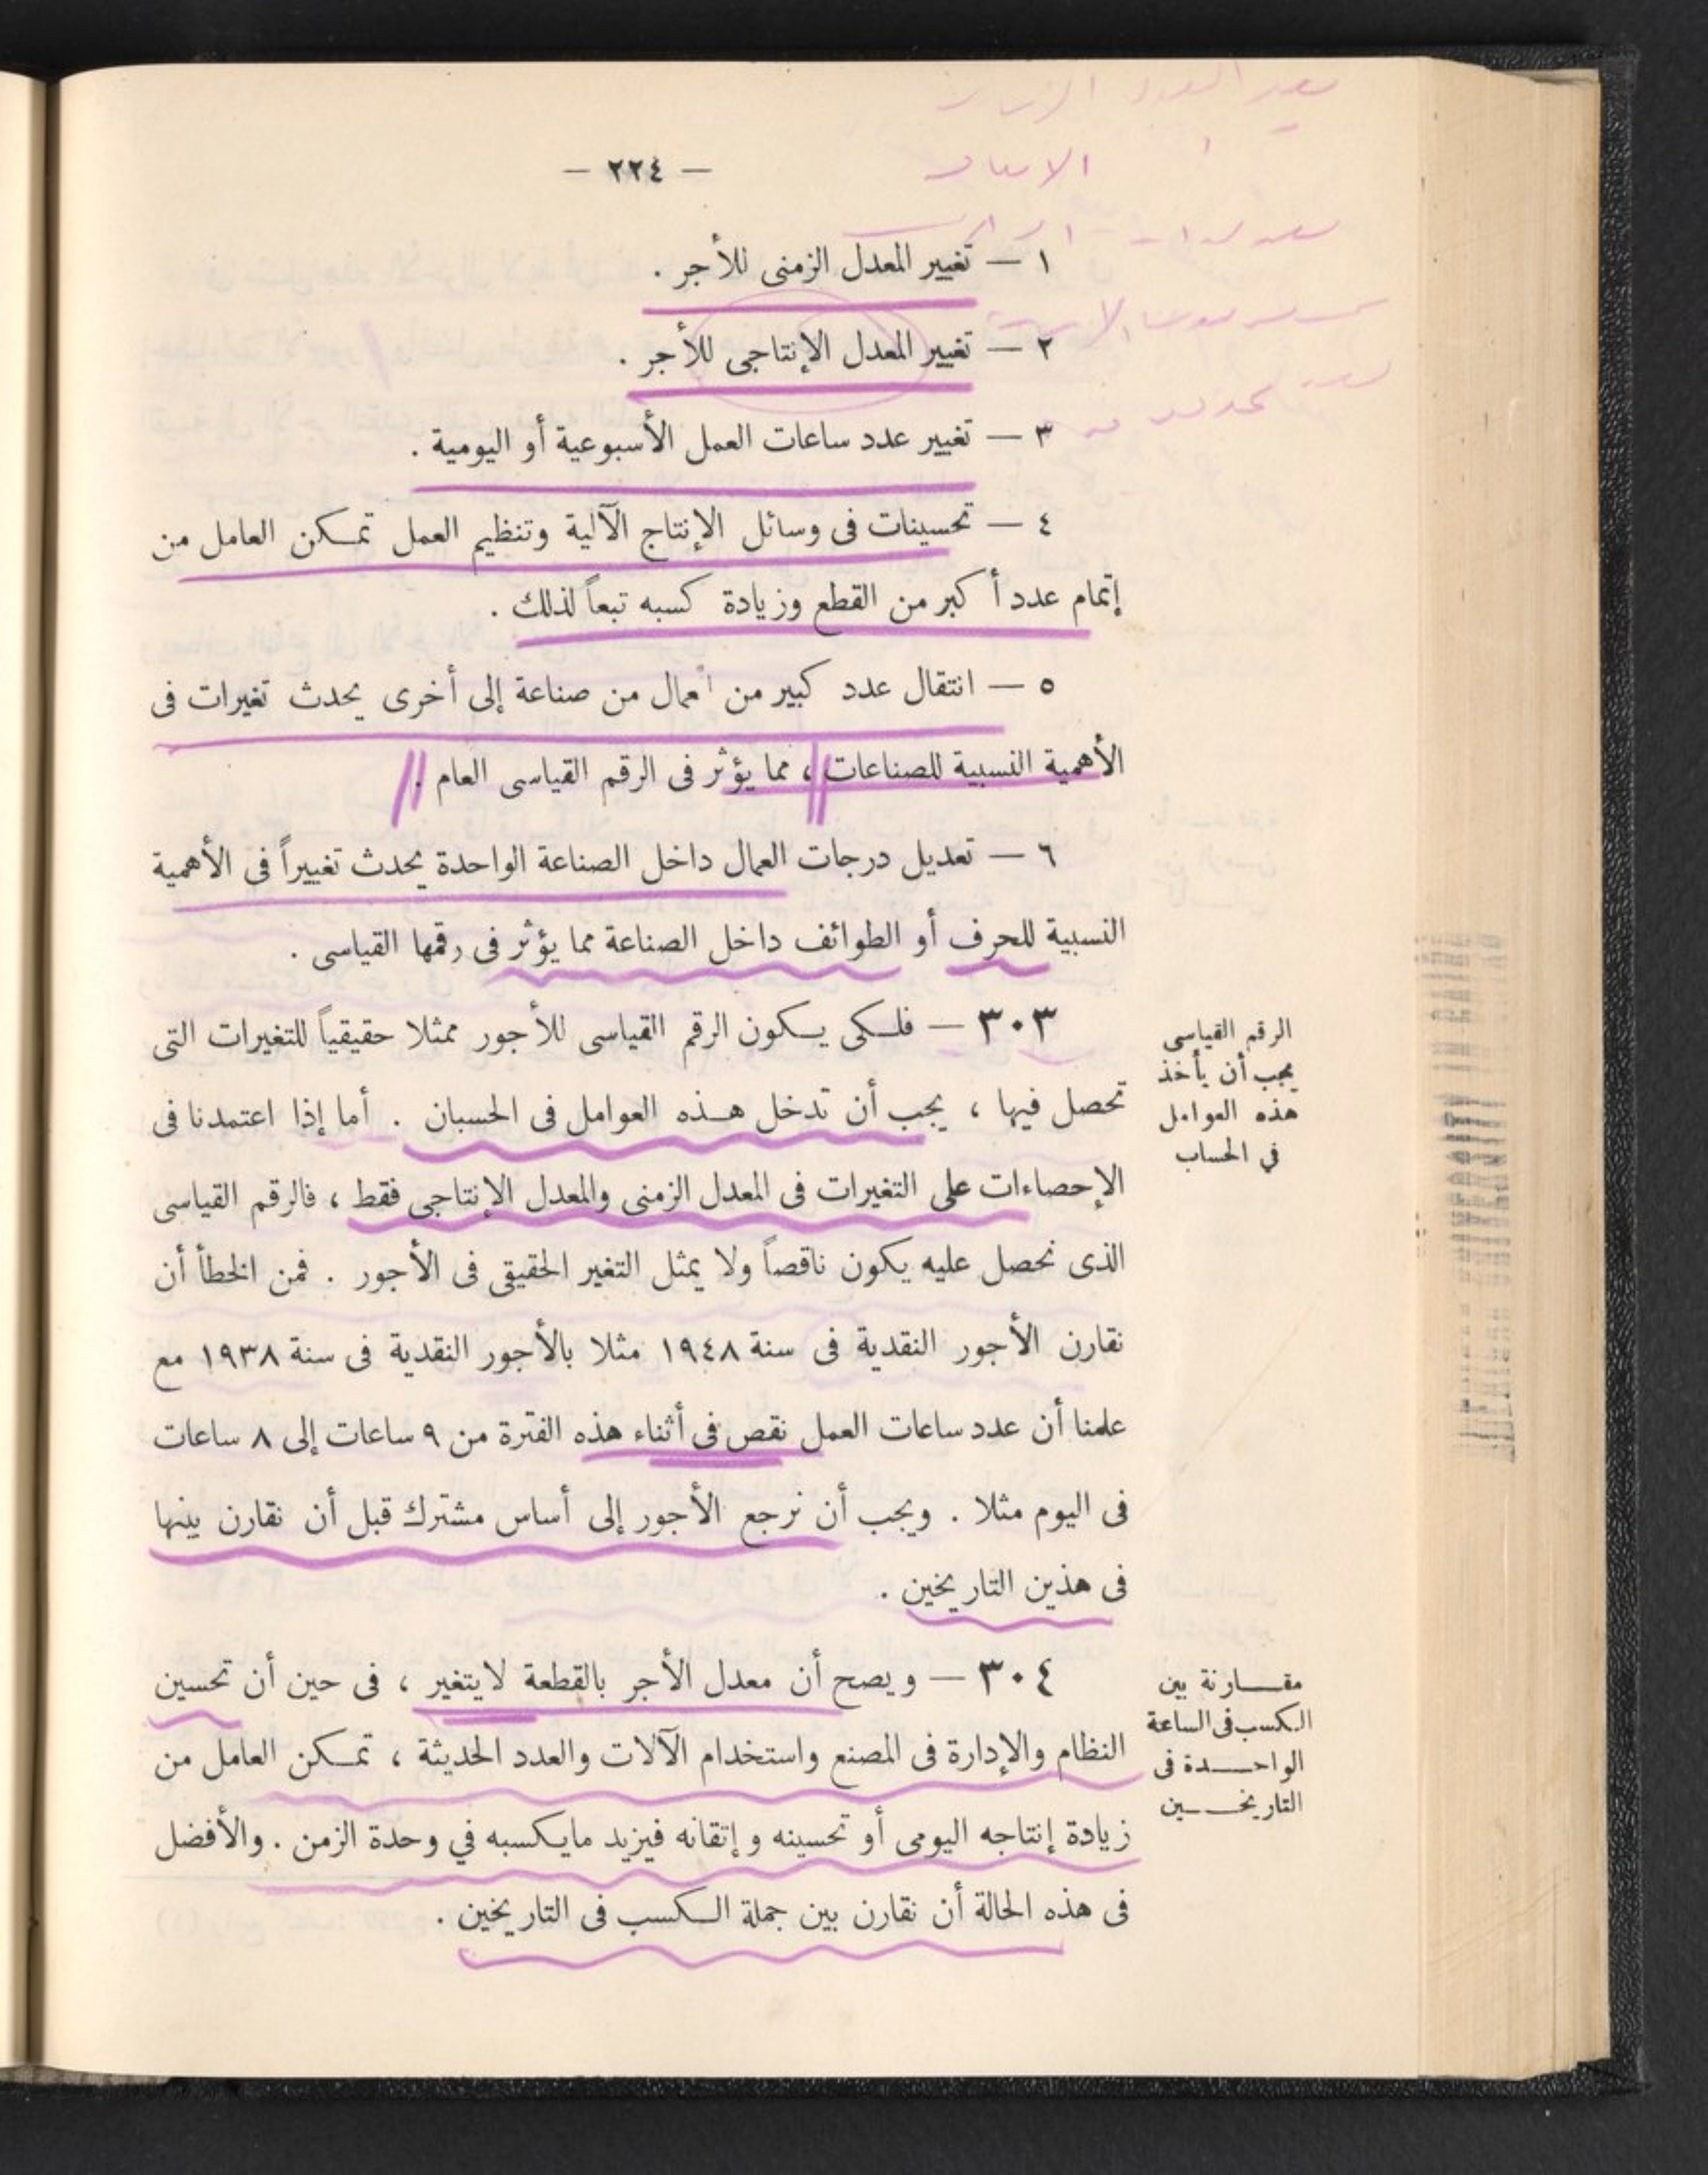 — ٢٢٤ —
١ — تغيير المعدل الزمنى للأجر .
٢ — تغيير المعدل الإنتاجى للأجر .
٣ — تغيير عدد ساعات العمل الأسبوعية أو اليومية .
٤ — تحسينات فى وسائل الإنتاج الآلية وتنظيم العمل تمكن العامل من
إتمام عدد أكبر من القطع وزيادة كسبه تبعاً لذلك .
٥ — انتقال عدد كبير من العمال من صناعة إلى أخرى يحدث تغيرات فى
الأهمية النسبية للصناعات ، مما يؤثر فى الرقم القياسى العام .
٦ — تعديل درجات العمال داخل الصناعة الواحدة يحدث تغييراً فى الأهمية
النسبية للحرف أو الطوائف داخل الصناعة مما يؤثر فى رقمها القياسى .
الرقم القياسى
يجب أن يأخذ
هذه العوامل
في الحساب
٣٠٣ — فلكى يكون الرقم القياسى للأجور ممثلا حقيقياً للتغيرات التى
تحصل فيها ، يجب أن تدخل هذه العوامل فى الحسبان . أما إذا اعتمدنا فى
الإحصاءات على التغيرات فى المعدل الزمنى والمعدل الإنتاجى فقط ، فالرقم القياسى
الذى نحصل عليه يكون ناقصاً ولا يمثل التغير الحقيقى فى الأجور . فمن الخطأ أن
نقارن الأجور النقدية فى سنة ١٩٤٨ مثلا بالأجور النقدية فى سنة ١٩٣٨ مع
علمنا أن عدد ساعات العمل نقص فى أثناء هذه الفترة من ٩ ساعات إلى ٨ ساعات
فى اليوم مثلا . ويجب أن نرجع الأجور إلى أساس مشترك قبل أن نقارن بينها
فى هذين التاريخين .
مقارنة بين
الكسب فى الساعة
الواحدة فى
التاريخين
٣٠٤ — ويصح أن معدل الأجر بالقطعة لايتغير ، فى حين أن تحسين
النظام والإدارة فى المصنع واستخدام الآلات والعدد الحديثة ، تمكن العامل من
زيادة إنتاجه اليومى أو تحسينه وإتقانه فيزيد مايكسبه في وحدة الزمن . والأفضل
فى هذه الحالة أن نقارن بين جملة الكسب فى التاريخين .